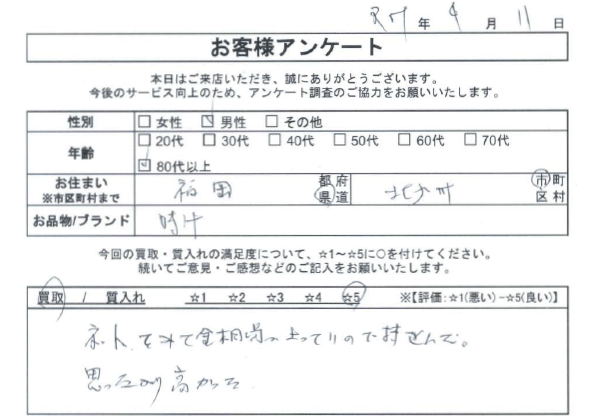 R7年9月11日
お客様アンケート
本日はご来店いただき、誠にありがとうございます。
今後のサービス向上のため、アンケート調査のご協力をお願いいたします。
性別 □女性 ☑男性 □その他
年齢 □20代 □30代 □40代 □50代 □60代 □70代
☑80代以上
お住まい ※市区町村まで 福岡 都府県道 北九州 市町区村
お品物/ブランド 時計
今回の買取・質入れの満足度について、☆1～☆5に○を付けてください。
続いてご意見・ご感想などのご記入をお願いいたします。
買取 / 質入れ ☆1 ☆2 ☆3 ☆4 ☆5 ※【評価:☆1(悪い)-☆5(良い)】
ネットをみて金相場が上っているので
思ったより高かった